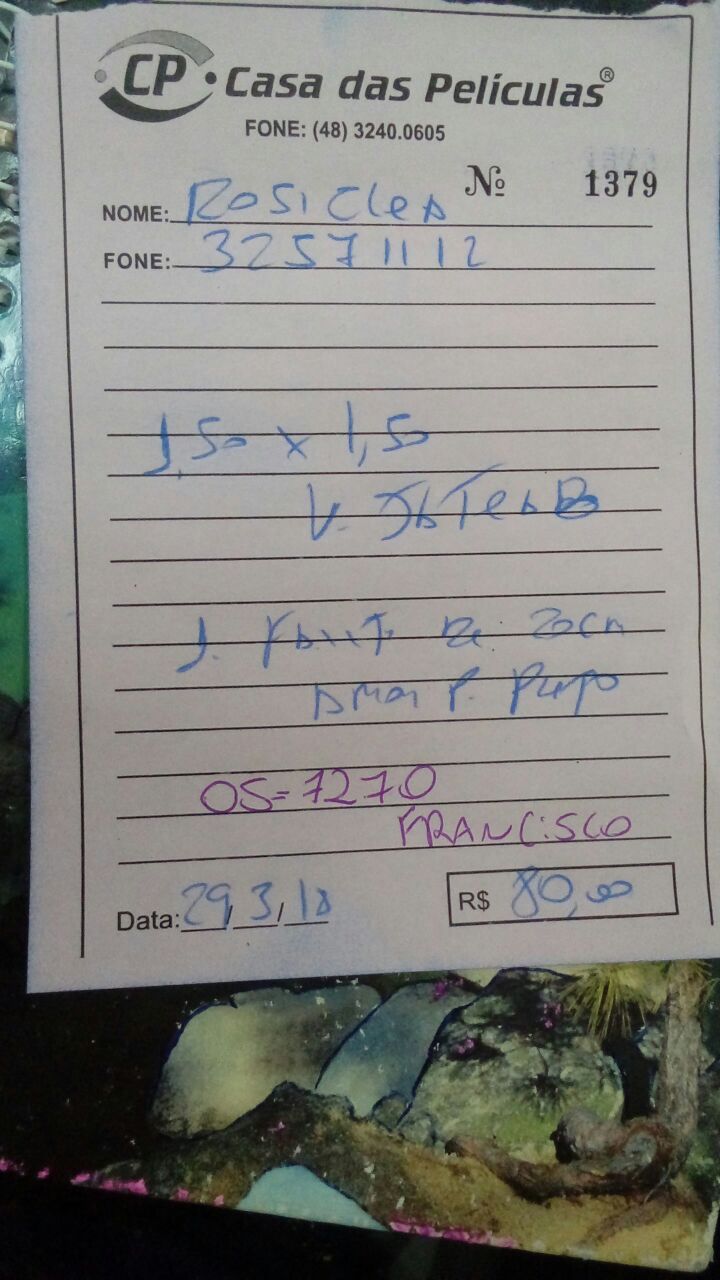 CP Casa das Películas®
FONE: (48) 3240.0605
Nº 1379
NOME: Rosicleа
FONE: 32571112
1,50 x 1,50
V.
1. 20cm
P.
OS=7270
FRANCISCO
Data: 29/3/18
R$ 80,00